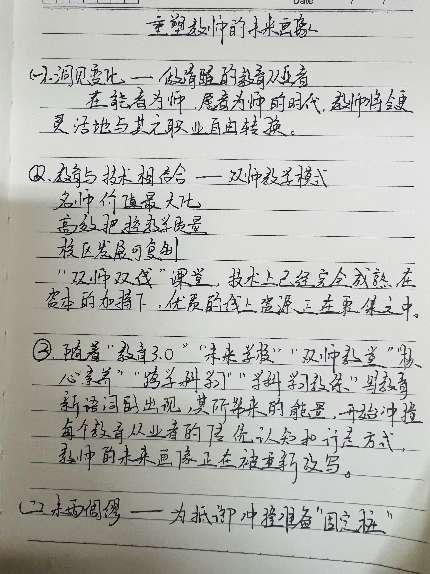 Date
重塑教师的未来画像
(一)洞见变化——做清醒的教育从业者
在能者为师、愿者为师的时代,教师将会更
灵活地与其它职业自由转换。
②、教育与技术相结合——双师教学模式
名师价值最大化
高效把控教学质量
校区发展可复制
“双师双线”课堂,技术上已经完全成熟,在
资本的加持下,优质的线上资源正在更集文中。
③随着“教育3.0”“未来学校”“双师教室”“核
心素养”“跨学科学习”“学科学习教练”等教育
新语词的出现,其所带来的能量,开始冲撞
每个教育从业者的传统认知和行走方式,
教师的未来画像正在被重新改写。
(二)未雨绸缪——为抵御冲撞准备“固定桩”